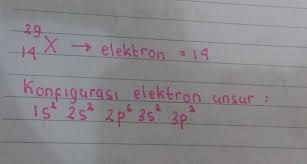 ²⁹₁₄X → elektron = 14
Konfigurasi elektron unsur :
1s² 2s² 2p⁶ 3s² 3p²